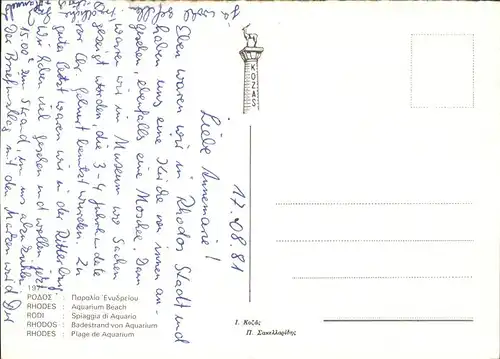 17.08.81
Liebe Annemarie!
Eben waren wir in Rhodos Stadt und
haben uns eine Kirche von innen an-
gesehen, ebenfalls eine Moschee. Dann
waren wir im Museum wo Sachen
gezeigt wurden, die 3-4 Jahrhunderte
vor Chr. Geburt benutzt wurden. Zu
guter letzt waren wir in der Ritterburg
Wir haben viel gesehen und wollen jetzt
15.00 zum Strand, um uns
Der Briefumschlag mit den Marken wird Dir
KOZAS
197
ΡΟΔΟΣ : Παραλία Ἐνυδρείου
RHODES : Aquarium Beach
RODI : Spiaggia di Aquario
RHODOS : Badestrand von Aquarium
RHODES : Plage de Aquarium
Ι. Κοζᾶς
Π. Σακελλαρίδης